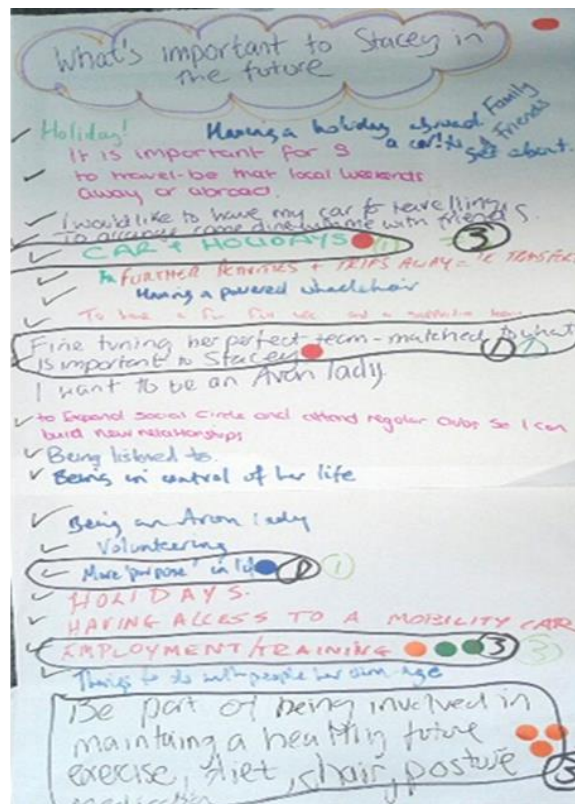 What's important to Stacey in
the future
Holiday! Having a holiday abroad Family
Friends
a car! to get about.
It is important for S
to travel - be that local weekends
away or abroad.
I would like to have my car for travelling
To arrange come dine with me with friends.
CAR + HOLIDAYS 3
FURTHER ACTIVITIES + TRIPS AWAY =
Having a powered wheelchair
To have a fun
Fine tuning her perfect team - matched to what
is important to Stacey 1 1
I want to be an Avon lady.
to Expand Social Circle and attend regular clubs so I can
build new relationships
Being listened to.
Being in control of her life
Being an Avon lady
Volunteering
More "purpose" in life 1 1
HOLIDAYS.
HAVING ACCESS TO A MOBILITY CAR
EMPLOYMENT/TRAINING 3 3
Things to do with people her own age
Be part of being involved in
maintaing a healthy future
exercise, diet, chair, posture 3